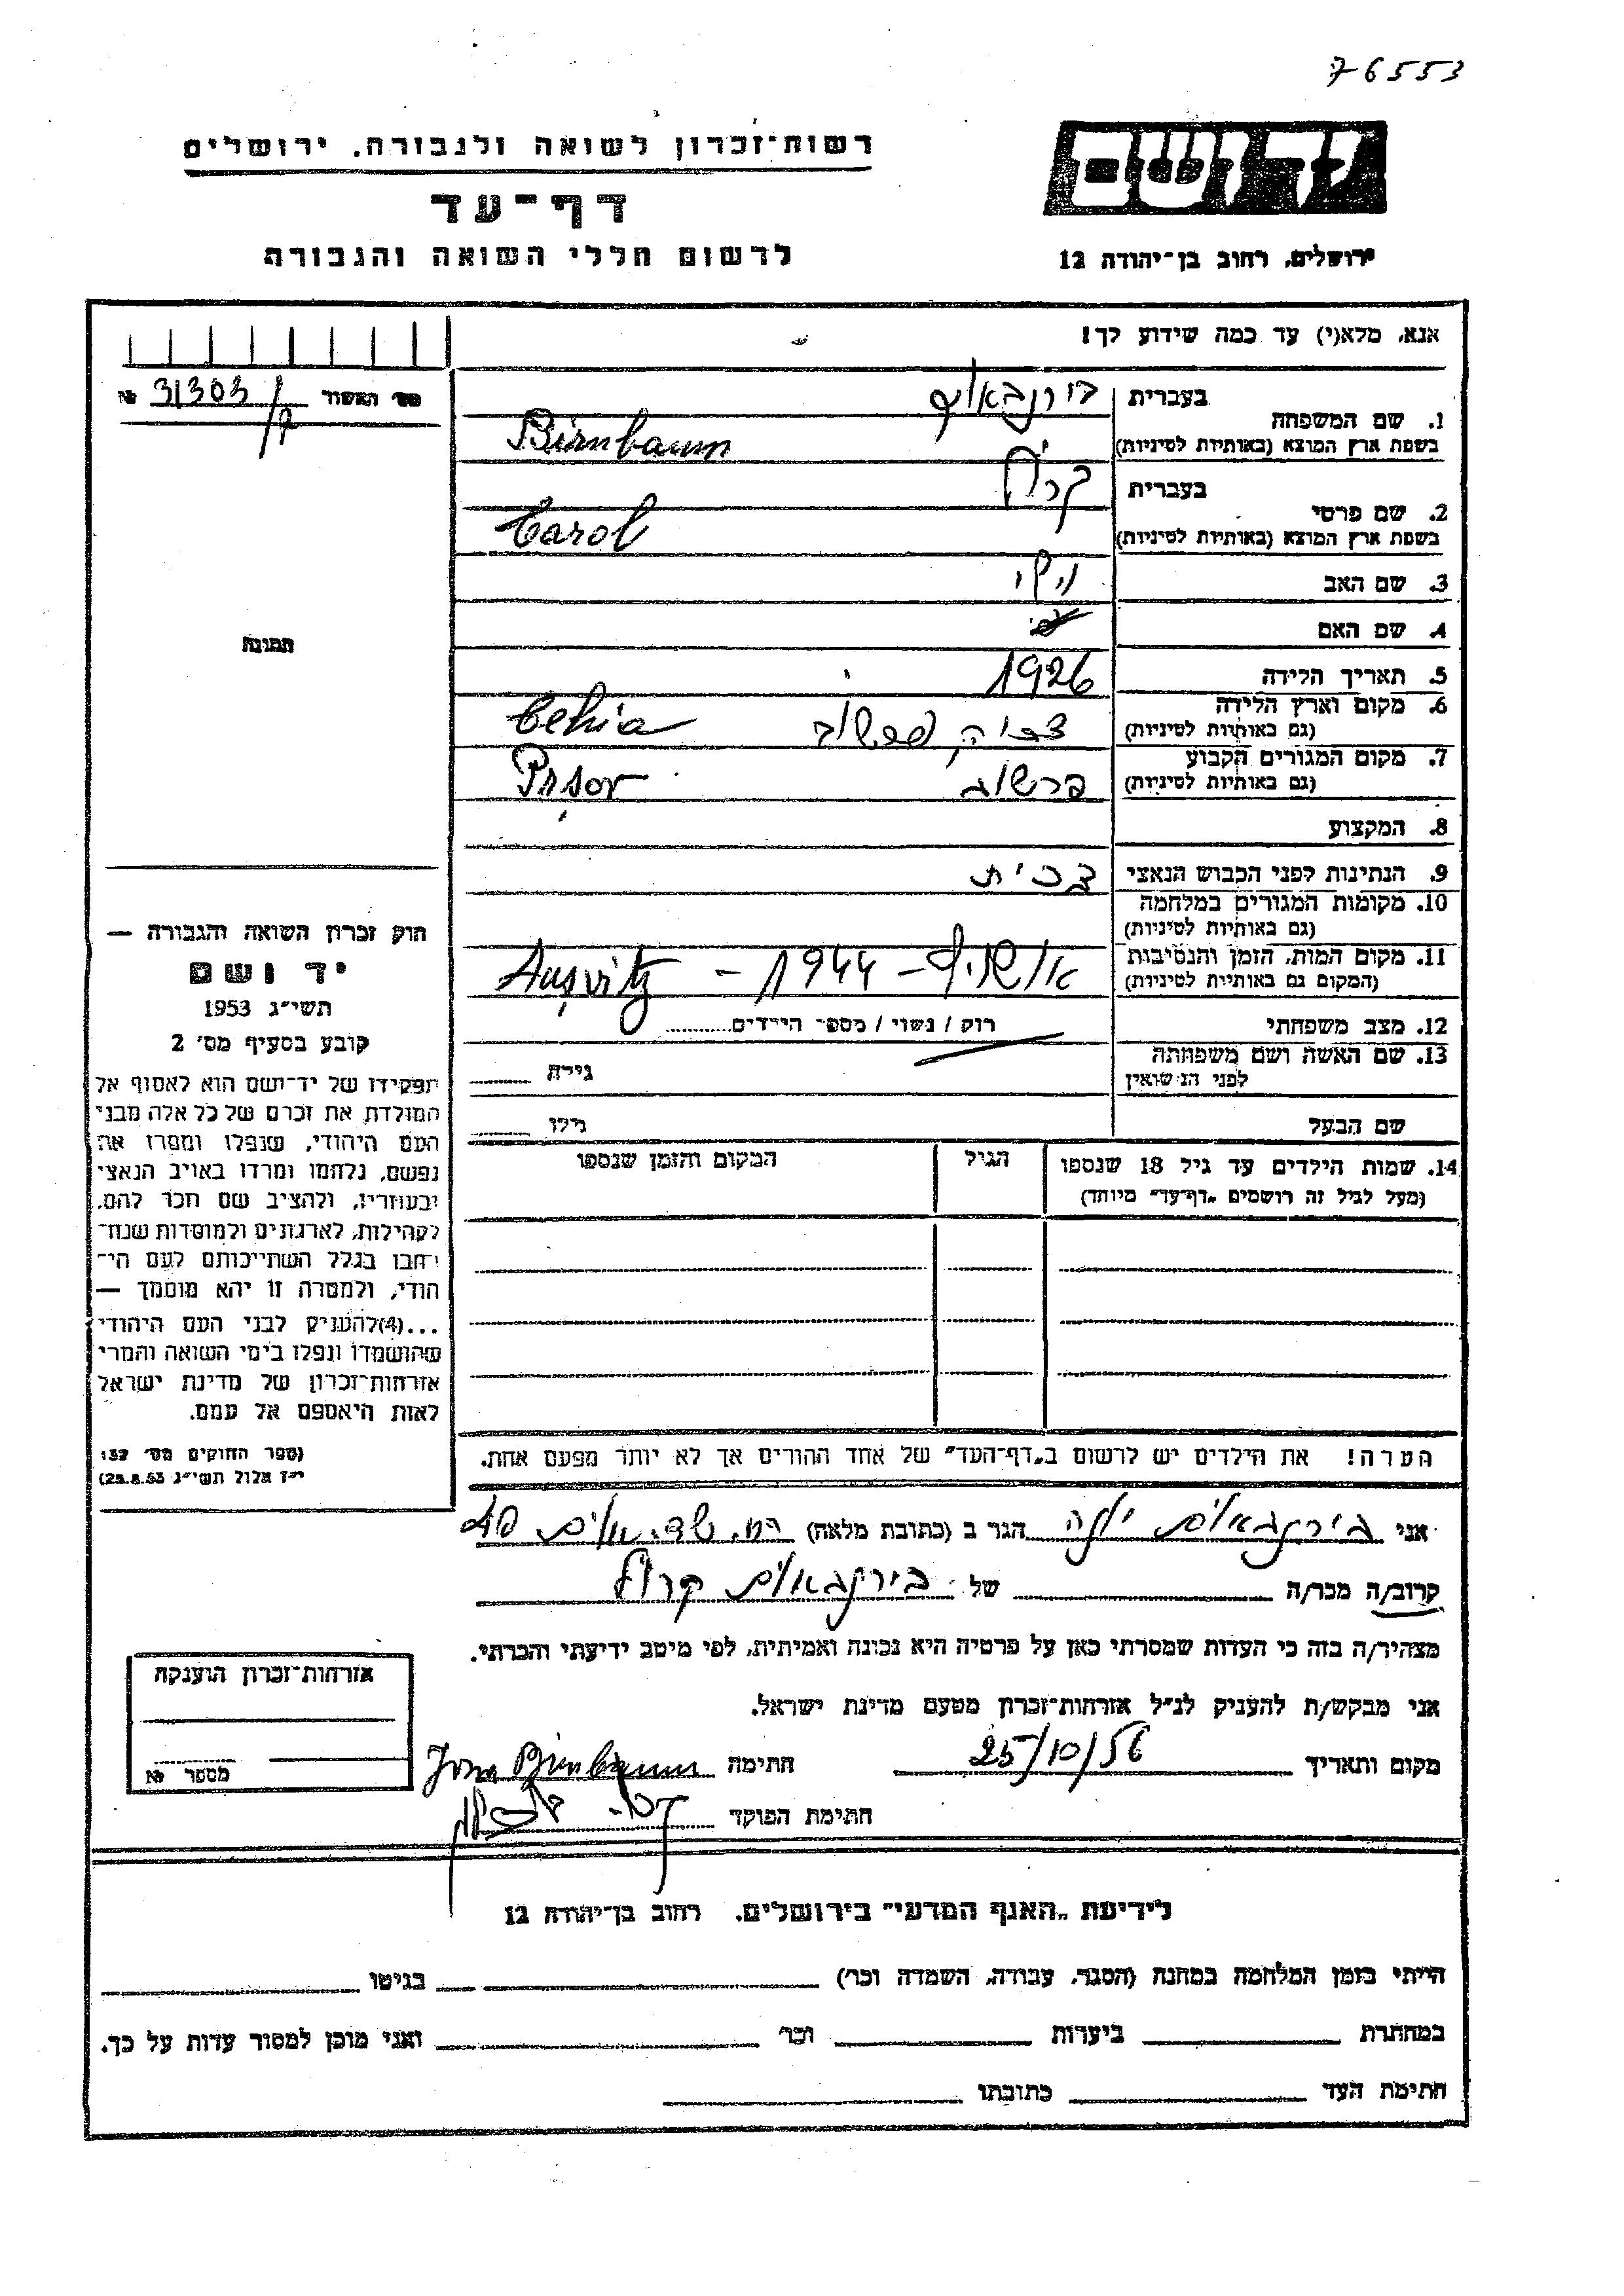 76553
רשות־זכרון לשואה ולגבורה. ירושלים
דף־עד
לרשום חללי השואה והגבורה
יד ושם
ירושלים, רחוב בן־יהודה 12
אנא, מלא(י) עד כמה שידוע לך!
מס' האשור 31303/7 №
1. שם המשפחה
בעברית בירנבאום
בשפת ארץ המוצא (באותיות לטיניות) Birnbaum
2. שם פרטי
בעברית קרול
בשפת ארץ המוצא (באותיות לטיניות) Carol
3. שם האב
4. שם האם
5. תאריך הלידה 1926
6. מקום וארץ הלידה
(גם באותיות לטיניות) Cehia
7. מקום המגורים הקבוע
(גם באותיות לטיניות) פרשוב Prsov
8. המקצוע
9. הנתינות לפני הכבוש הנאצי צכית
10. מקומות המגורים במלחמה
(גם באותיות לטיניות)
11. מקום המות, הזמן והנסיבות
(המקום גם באותיות לטיניות) אושויץ – 1944 – Aușvitz
12. מצב משפחתי רוק / נשוי / מספר הילדים
13. שם האשה ושם משפחתה
לפני הנישואין גילה
שם הבעל גילו
14. שמות הילדים עד גיל 18 שנספו
(מעל לגיל זה רושמים „דף־עד" מיוחד)
הגיל
המקום והזמן שנספו
הערה! את הילדים יש לרשום ב„דף־העד" של אחד ההורים אך לא יותר מפעם אחת.
תמונה
חוק זכרון השואה והגבורה —
יד ושם
תשי"ג 1953
קובע בסעיף מס' 2
תפקידו של יד־ושם הוא לאסוף אל
המולדת את זכרם של כל אלה מבני
העם היהודי, שנפלו ומסרו את
נפשם, נלחמו ומרדו באויב הנאצי
ובעוזריו, ולהציב שם וזכר להם,
לקהילות, לארגונים ולמוסדות שנח־
רבו בגלל השתייכותם לעם הי־
הודי, ולמטרה זו יהא מוסמך —
...(4)להעניק לבני העם היהודי
שהושמדו ונפלו בימי השואה והמרי
אזרחות־זכרון של מדינת ישראל
לאות היאספם אל עמם.
(ספר החוקים מס' 132
י"ז אלול תשי"ג 28.8.53)
אני בירנבאום יונה הגר ב (כתובת מלאה)
קרוב/ה מכר/ה של בירנבאום קרול
מצהיר/ה בזה כי העדות שמסרתי כאן על פרטיה היא נכונה ואמיתית, לפי מיטב ידיעתי והכרתי.
אני מבקש/ת להעניק לנ"ל אזרחות־זכרון מטעם מדינת ישראל.
מקום ותאריך 25/10/56 חתימה Jona Birnbaum
חתימת הפוקד
אזרחות־זכרון הוענקה
מספר №
לידיעת „האגף המדעי" בירושלים. רחוב בן־יהודה 12
הייתי בזמן המלחמה במחנה (הסגר, עבודה, השמדה וכר') בגיטו
במחתרת ביערות וכר' ואני מוכן למסור עדות על כך.
חתימת העד כתובתו